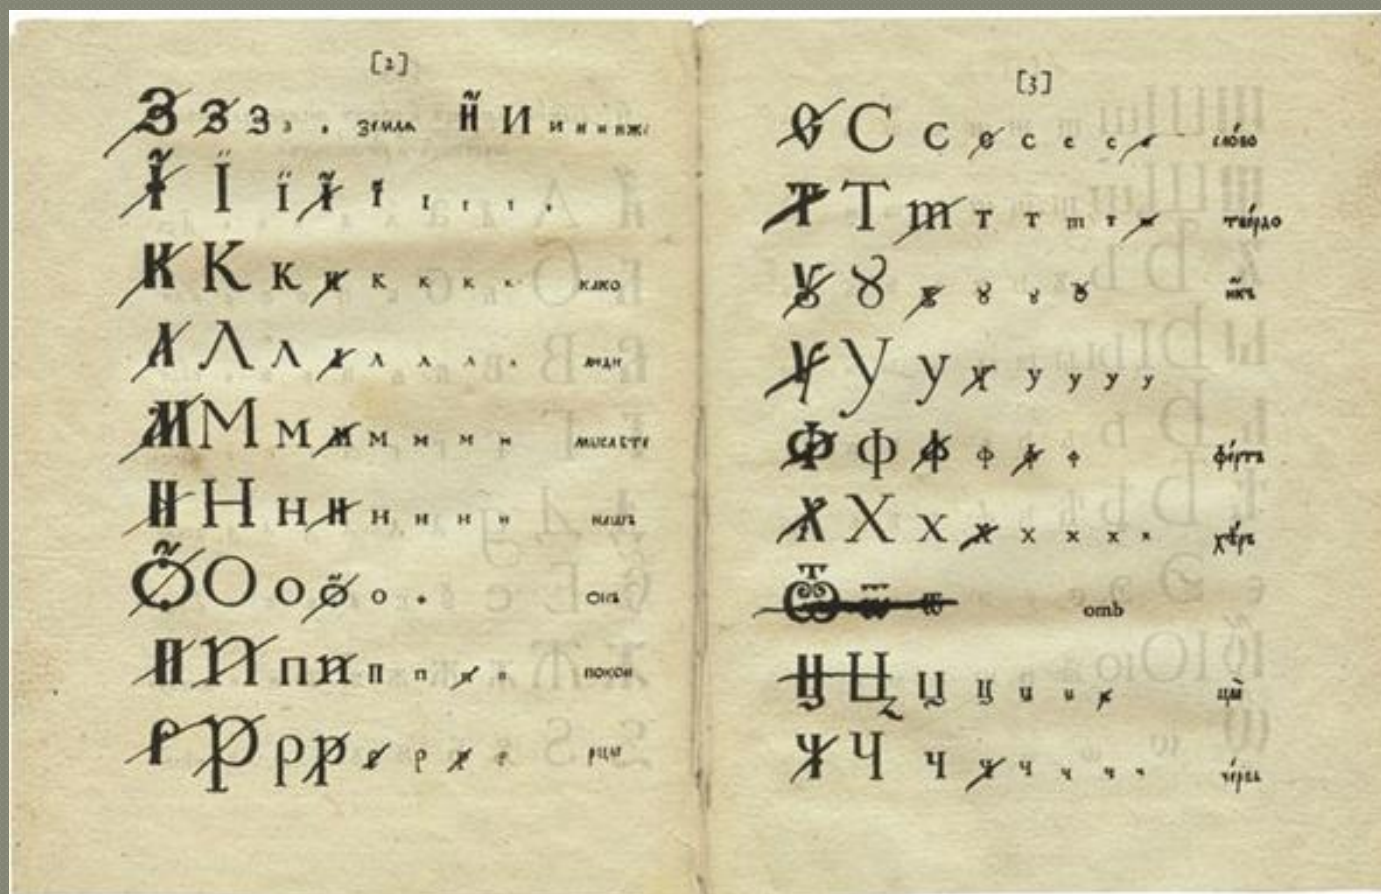 [2]
З З З з з земля Й И и и и иже
Ї Ї ї Ї ї ı ı ı ı
К К к к к к к к како
Л Л л л л л л л люди
М М м м м м м м мыслѣте
Н Н н н н н н н нашъ
О О о о о о онъ
П П п п п п п п покои
Р Р р р р р р р рцы
[3]
С С с с с с с с сло́во
Т Т т т т т т т тве́рдо
Ꙋ Ꙋ ꙋ ꙋ ꙋ ꙋ и҆́къ
У У у у у у у у
Ф ф ф ф ф ф фе́ртъ
Х Х х х х х х х хѣ́ръ
Ѿ ѿ ѿ отъ
Ц Ц ц ц ц ц ц цы̀
Ч Ч ч ч ч ч ч ч че́рвь